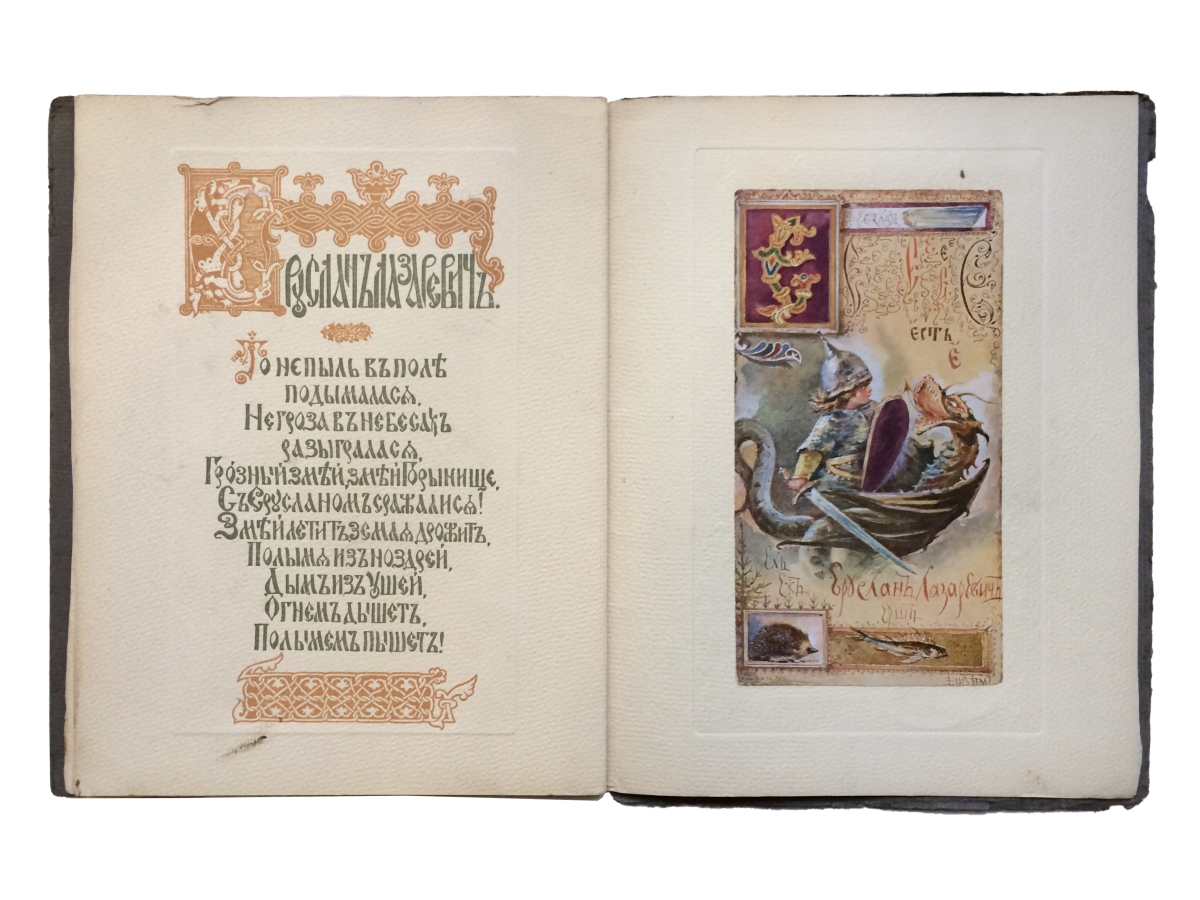 Ерусланъ Лазаревичъ.
То не пыль въ полѣ
подымалася,
Не гроза въ небесахъ
разыгралася,
Грозный змѣй, змѣй Горынище,
Съ Ерусланомъ сражалися!
Змѣй летитъ, земля дрожитъ,
Полымя изъ ноздрей,
Дымъ изъ ушей,
Огнемъ дышетъ,
Полымемъ пышетъ!
Е
Е Е
Есть
Е
Ель
Ерусланъ Лазаревичъ